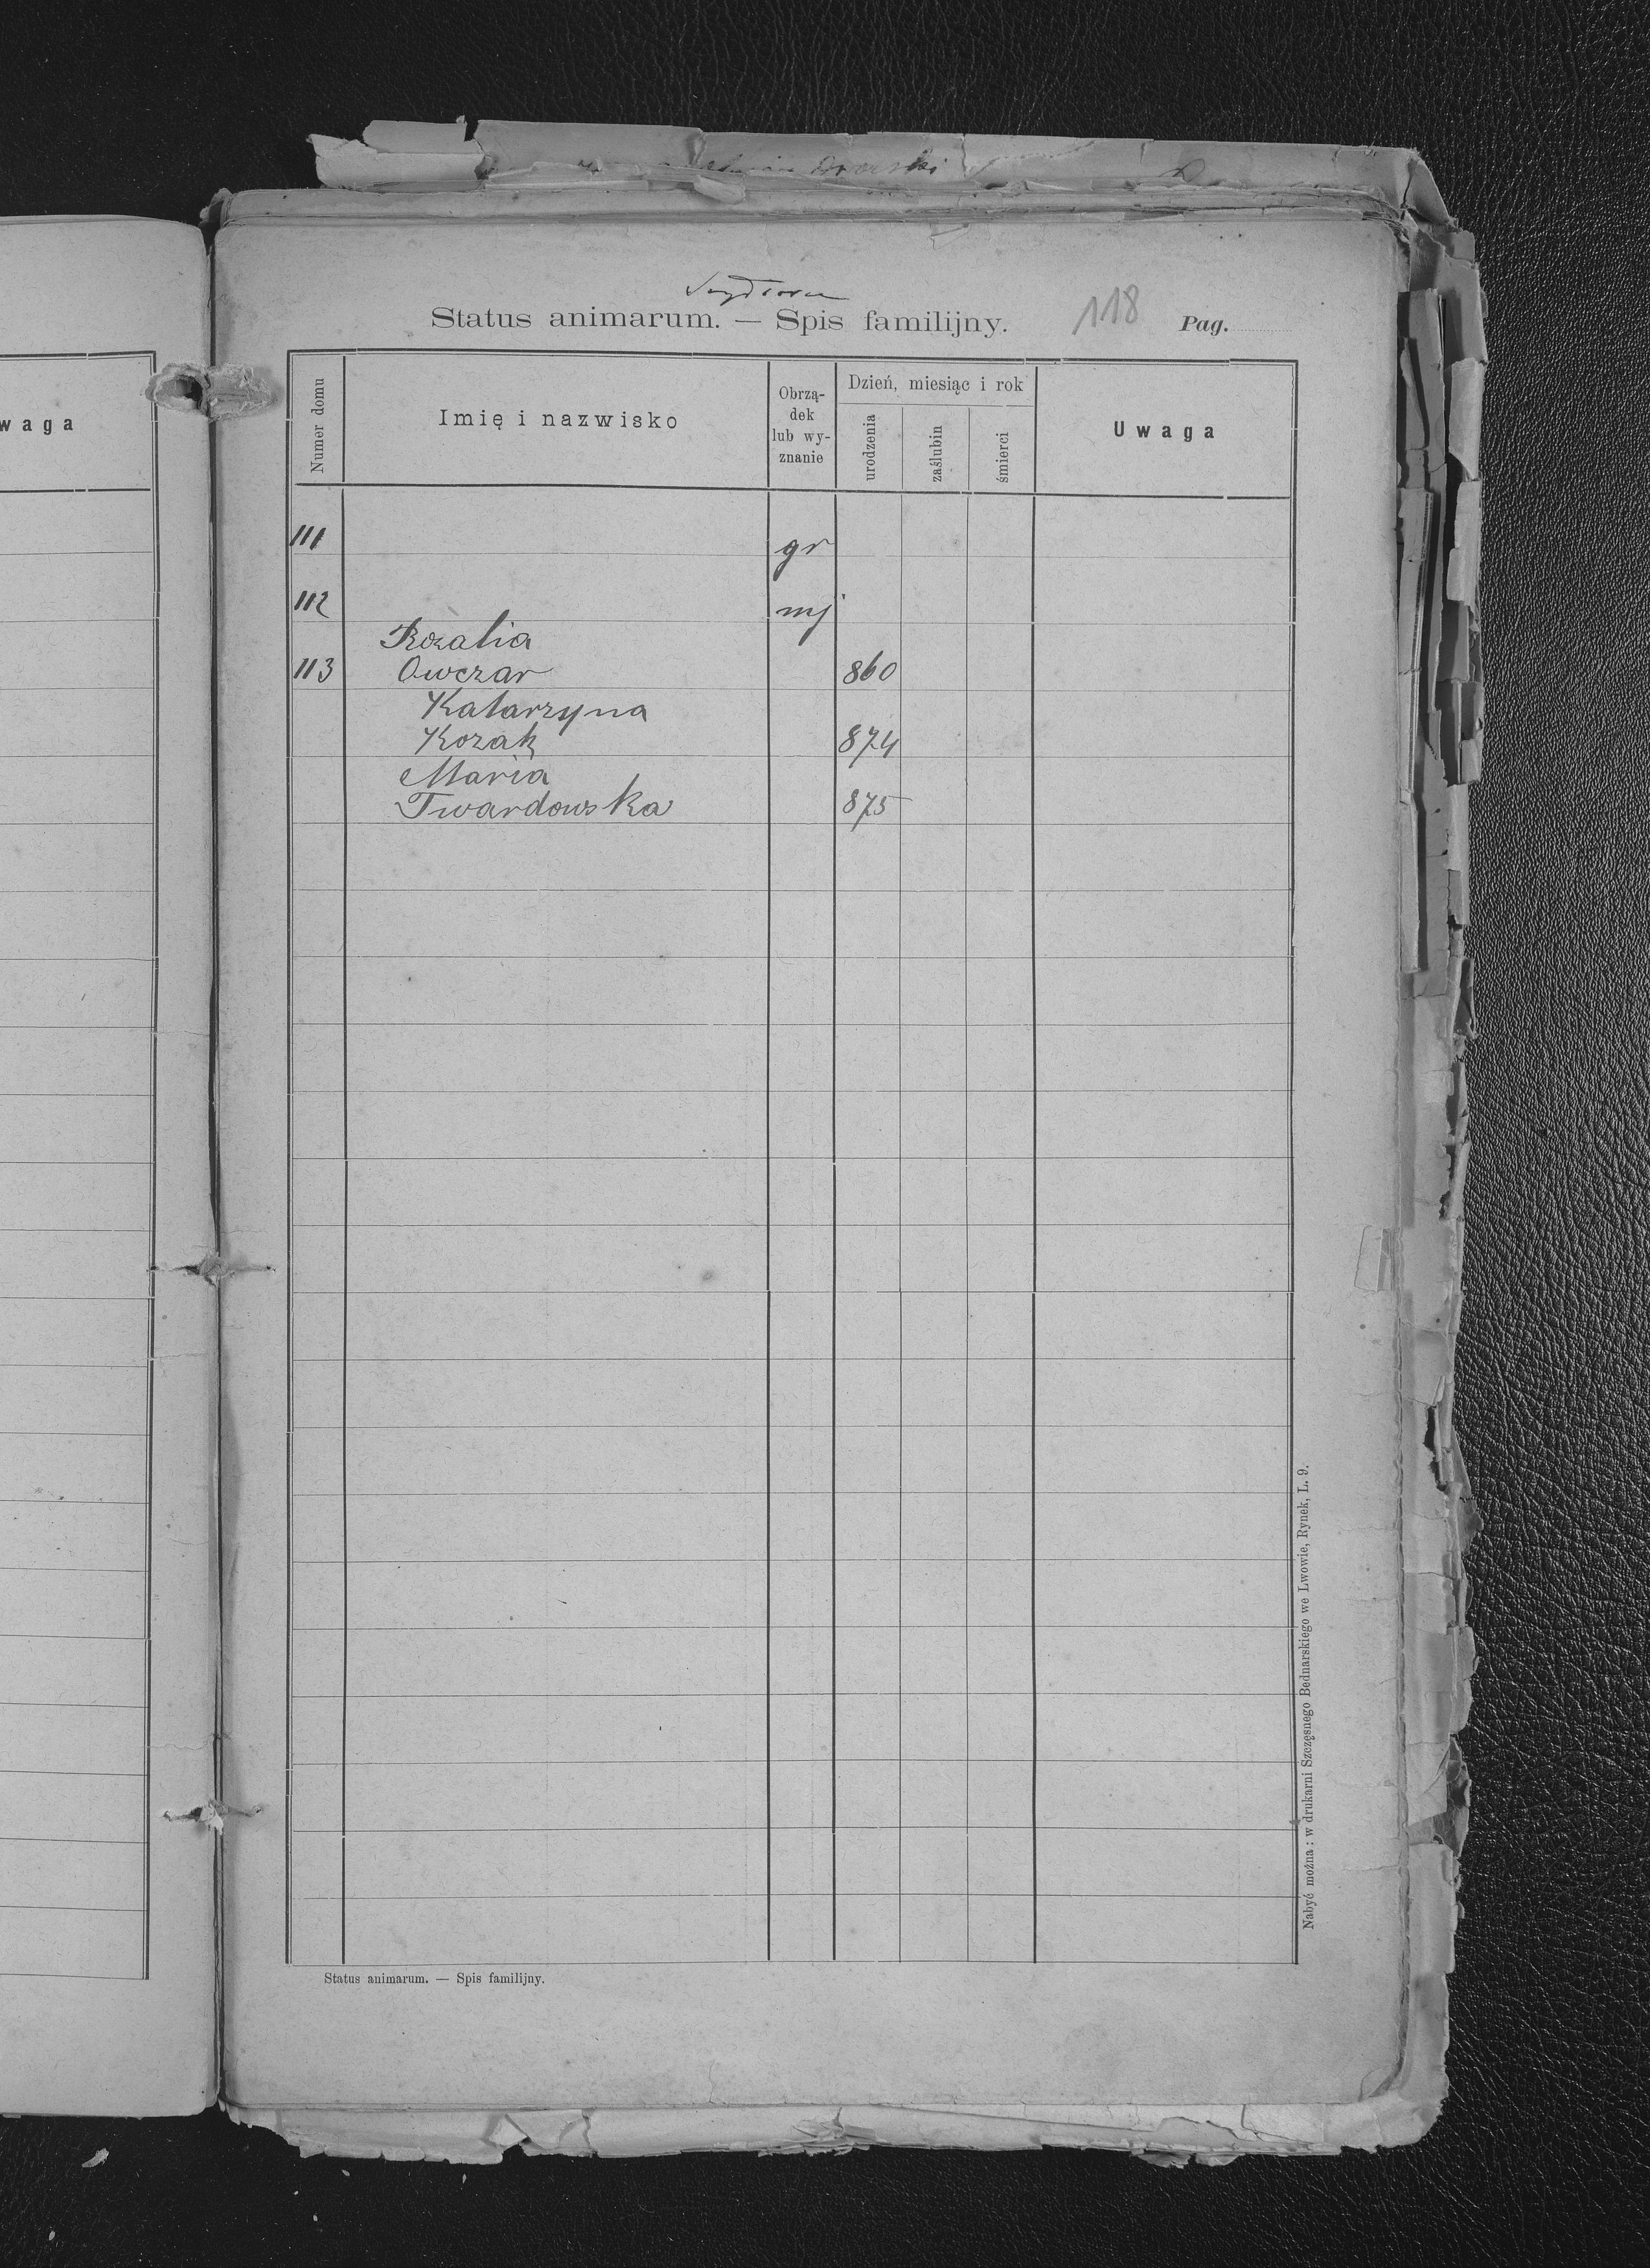 Status animarum. — Spis familijny. 118 Pag.
waga
Numer domu
Imię i nazwisko
Obrzą-
dek
lub wy-
znanie
Dzień, miesiąc i rok
urodzenia
zaślubin
śmierci
Uwaga
111 gr
112 mj
Rozalia
113 Owczar 860
Katarzyna
Kozak 874
Maria
Twardowska 875
Nabyć można: w drukarni Szczęsnego Bednarskiego we Lwowie, Rynek, L. 9.
Status animarum. — Spis familijny.